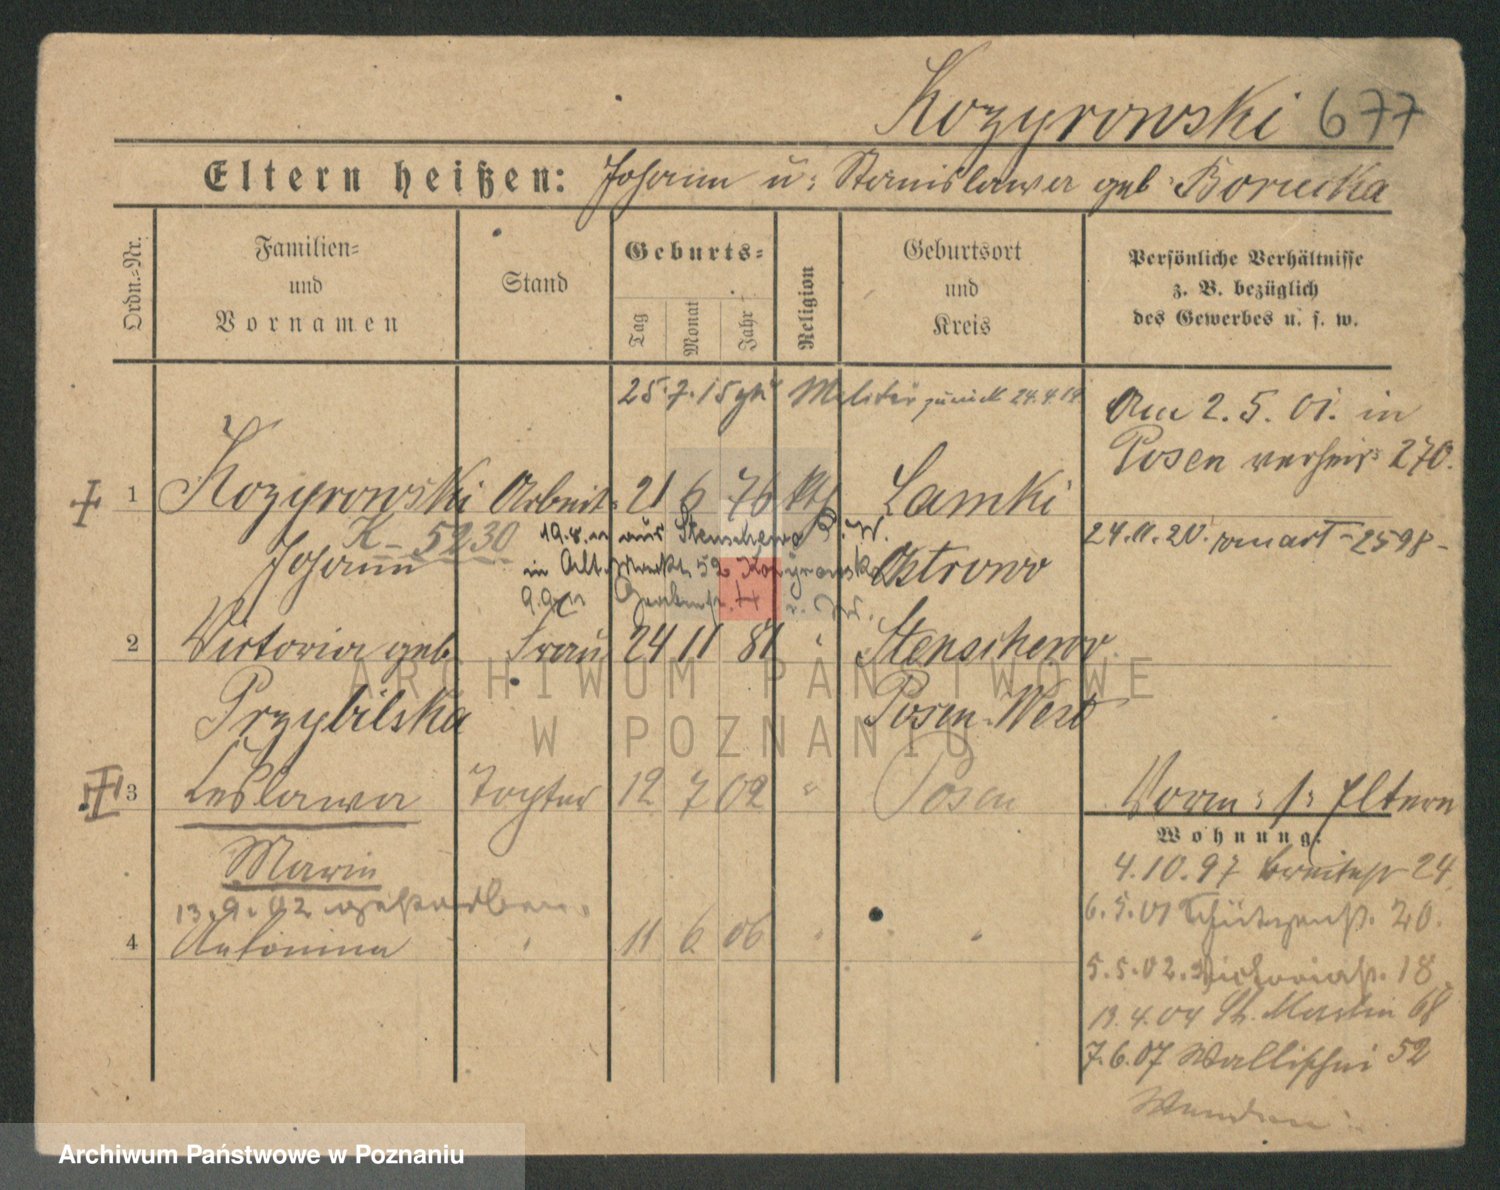 Kozyrowski 677
Eltern heißen: Johann u: Stanislawa geb: Borucka
Ordn.-Nr.
Familien-
und
Vornamen
Stand
Geburts-
Tag
Monat
Jahr
Religion
Geburtsort
und
Kreis
Persönliche Verhältnisse
z. B. bezüglich
des Gewerbes u. s. w.
25.7.15 Militär zurück 24.4.19
Am 2.5.01. in
Posen verheir: 270.
1 Kozyrowski Arbeit. 21 6 76 kth Lamki
K-5230
Johann
Ostrowo
19.8. aus Stenschewo P. W.
in Altmarkt 52 Kozyrowski
24.11.20. 2598-
2 Victoria geb. Frau 24 11 81 Stenschewo
Przybilska
Posen-West
3 Leslawa Tochter 12 7 02 " Posen
Maria
13.9.02 gestorben.
4 Antonina " 11 6 06 " "
Vorm: s: Eltern
Wohnung:
4.10.97 Breitestr 24
6.5.01 Schützenstr. 20.
5.5.02. Victoriastr. 18
13.4.04 St. Martin 68
7.6.07 Wallischei 52
ARCHIWUM PAŃSTWOWE
W POZNANIU
Archiwum Państwowe w Poznaniu